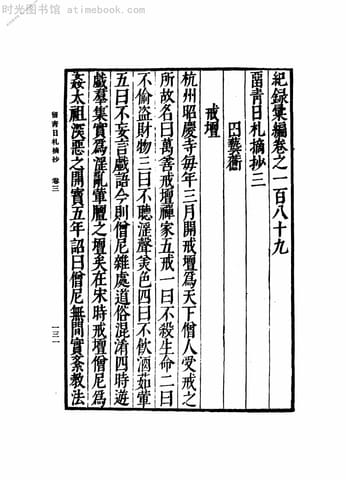 时光图书馆 - atimebook.com
紀録彙編卷之一百八十九
畱青日札摘抄三
田藝蘅
戒壇
杭州昭慶寺每年三月開戒壇爲天下僧人受戒之
所故名曰萬善戒壇禪家五戒一曰不殺生命二曰
不偷盗財物三曰不聽淫聲美色四曰不飲酒茹葷
五曰不妄言戲語今則僧尼雜處道俗混淆四時遊
戲羣集實爲淫亂葷膻之壇矣在宋時戒壇僧尼爲
姦太祖深惡之開寶五年詔曰僧尼無間實紊教法
留青日札摘抄 卷三
一三一
时光图书馆 - atimebook.com